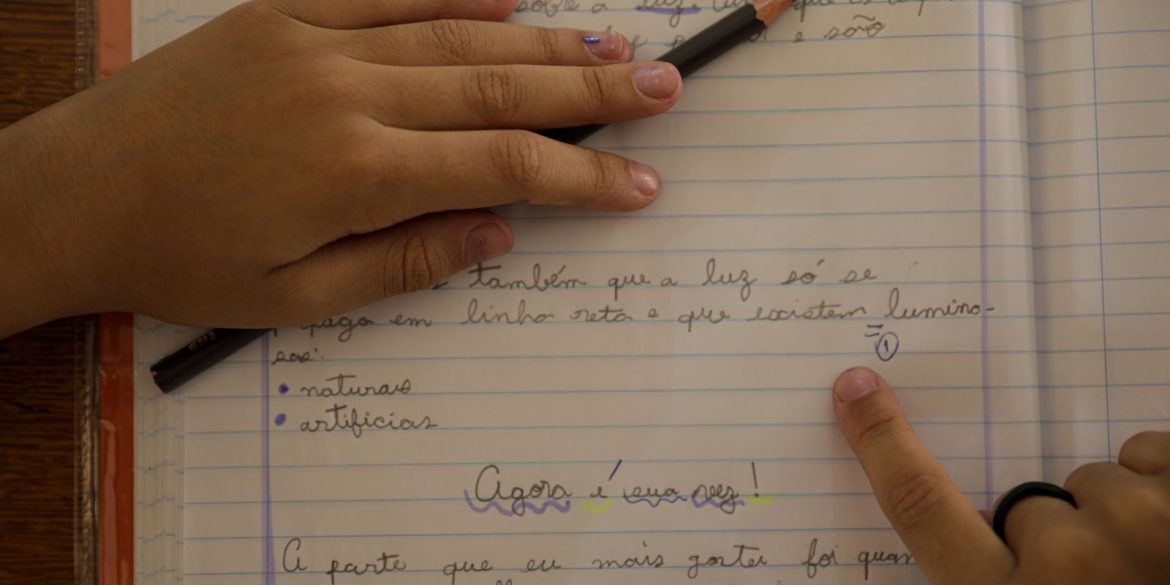 sobre a luz,
e são
também que a luz só se
em linha reta e que existem lumino-
sos:
1
• naturais
• artificias
Agora é sua vez!
A parte que eu mais gostei foi quan